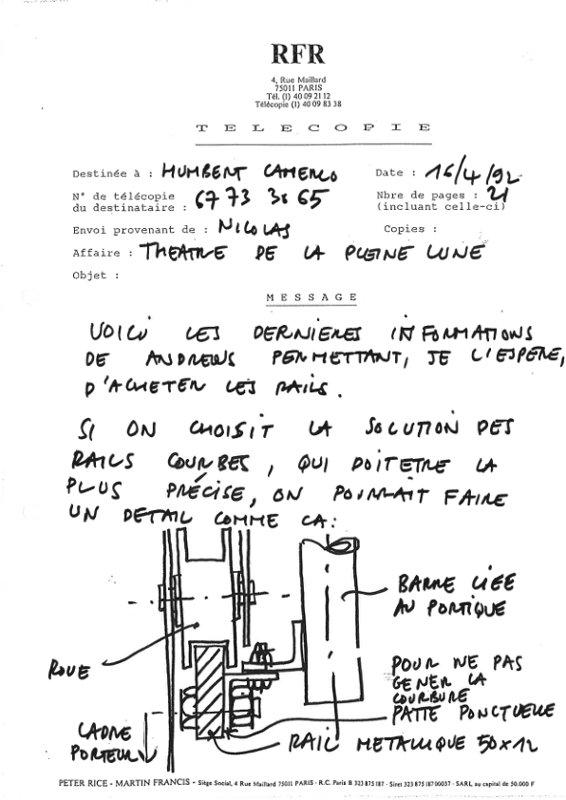 RFR
4, Rue Maillard
75011 PARIS
Tél. (1) 40 09 21 12
Télécopie (1) 40 09 83 38
T E L E C O P I E
Destinée à : HUMBERT CAMERLO
Date : 16/4/92
N° de télécopie
du destinataire : 67 73 38 65
Nbre de pages : 21
(incluant celle-ci)
Envoi provenant de : NICOLAS
Copies :
Affaire : THEATRE DE LA PLEINE LUNE
Objet :
M E S S A G E
VOICI LES DERNIERES INFORMATIONS
DE ANDREWS PERMETTANT, JE L'ESPERE,
D'ACHETER LES RAILS.
SI ON CHOISIT LA SOLUTION DES
RAILS COURBES, QUI DOIT ETRE LA
PLUS PRÉCISE, ON POURRAIT FAIRE
UN DETAIL COMME CA:
BARRE LIÉE
AU PORTIQUE
ROUE
POUR NE PAS
GENER LA
COURBURE
PATTE PONCTUELLE
CADRE
PORTEUR
RAIL METALLIQUE 50x12
PETER RICE - MARTIN FRANCIS - Siège Social, 4 Rue Maillard 75011 PARIS - R.C. Paris B 323 875 187 - Siret 323 875 187 00037 - SARL au capital de 50.000 F